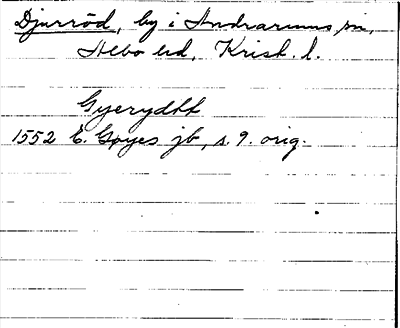 Djurröd, by i Andrarums sn,
Albo hd, Krist. l.
Gyerydtt
1552 E. Gøyes jb, s. 9. orig.